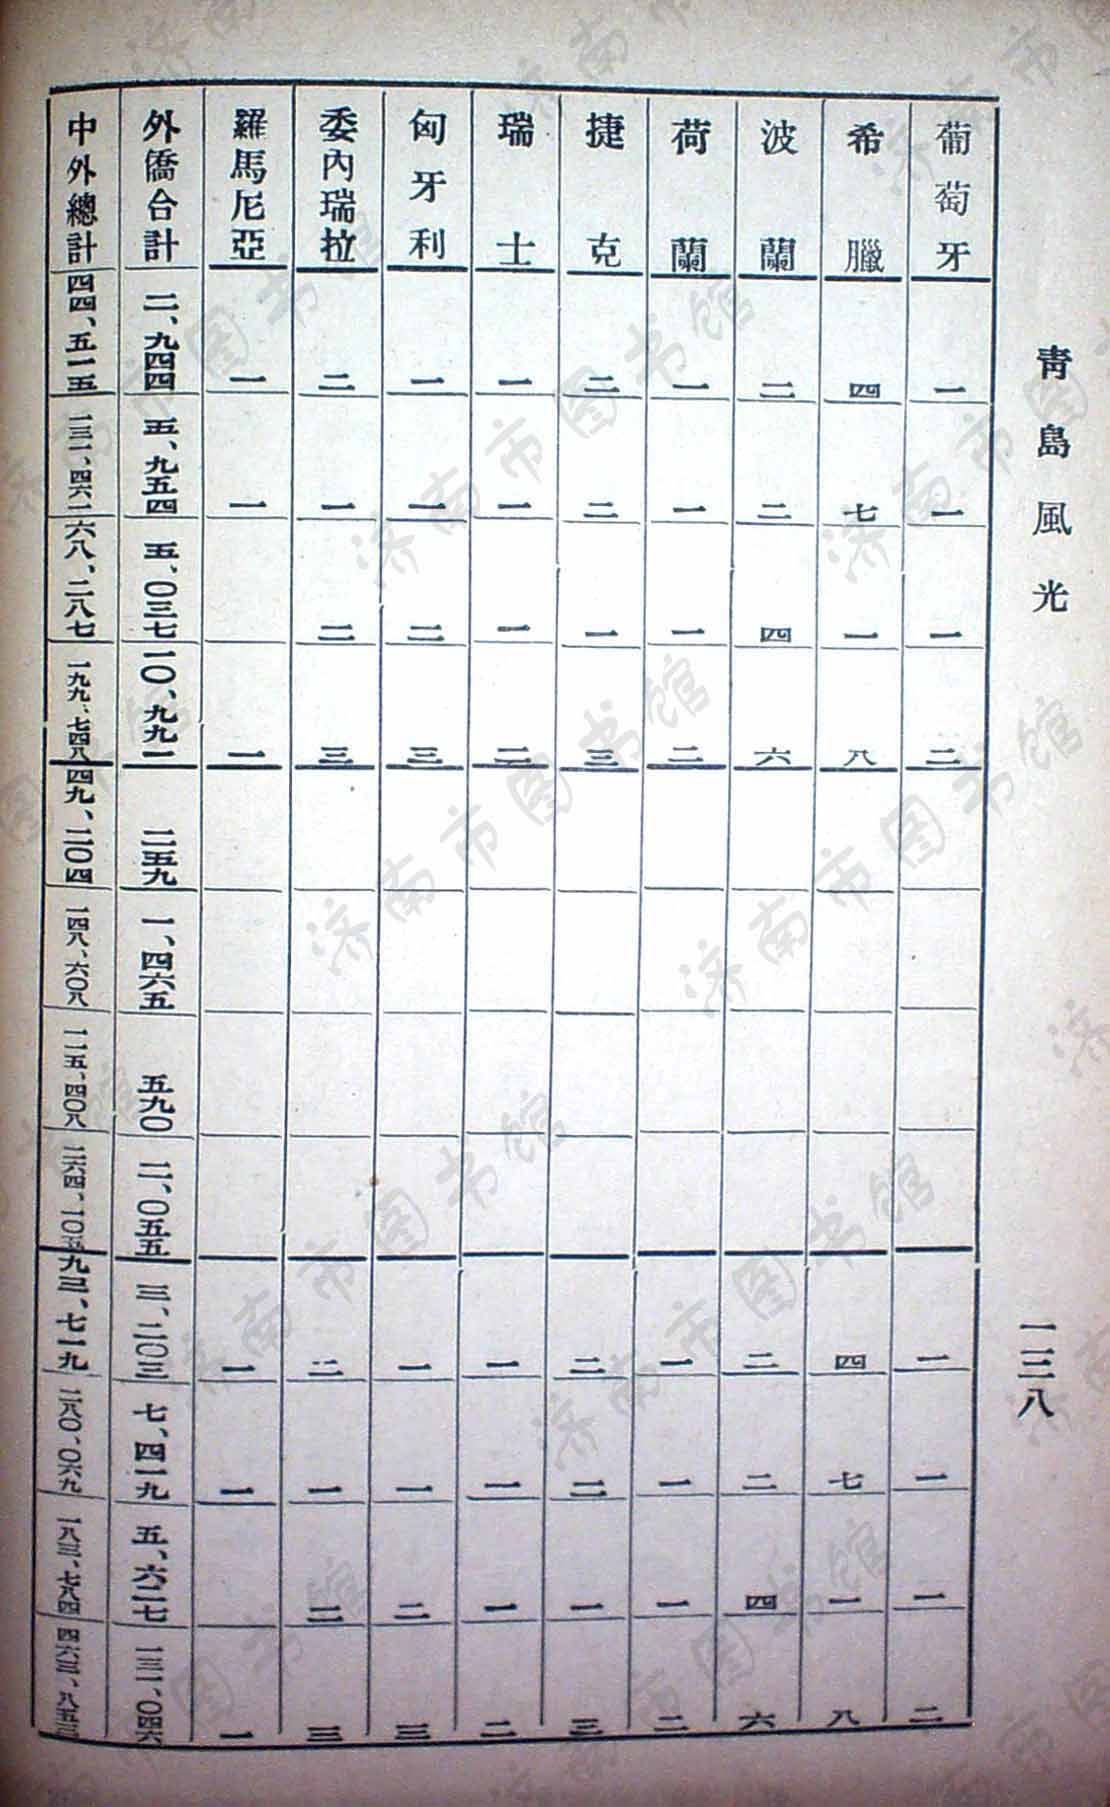 青島風光
一三八
葡萄牙 一 一 一 二 一 一 一 二
希臘 四 七 一 八 四 七 一 八
波蘭 二 二 四 六 二 二 四 六
荷蘭 一 一 一 二 一 一 一 二
捷克 二 二 一 三 二 二 一 三
瑞士 一 一 一 二 一 一 一 二
匈牙利 一 一 二 三 一 一 二 三
委內瑞拉 二 一 二 三 二 一 二 三
羅馬尼亞 一 一 一 一 一 一
外僑合計 二、九四四 五、九五四 五、〇三七 一〇、九九一 二五九 一、四六五 五九〇 二、〇五五 三、二〇三 七、四一九 五、六二七 一三、〇四六
中外總計 四四、五一五 一三一、四六一 六八、二八七 一九九、七四八 四九、二〇四 一四八、六〇八 一一五、四〇八 二六四、一〇五 九三、七一九 二八〇、〇六九 一八三、七八四 四六三、八五三
济南市图书馆